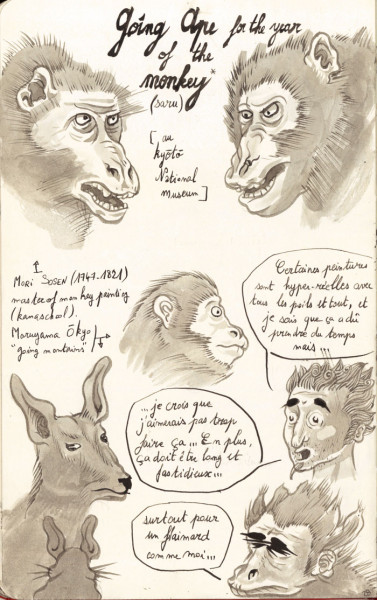 Going Ape for the year
of the
monkey*
(saru)
[ au
Kyōto
National
Museum ]
Mori Sosen (1747-1821)
master of monkey painting
(kanoschool).
Maruyama Ōkyo
"going mountains"
Certaines peintures
sont hyper-réelles avec
tous les poils et tout, et
je sais que ça a dû
prendre du temps
mais !!!
...je crois que
j'aimerais pas trop
faire ça... En plus,
ça doit être long et
fastidieux...
surtout pour
un flaimard
comme moi...